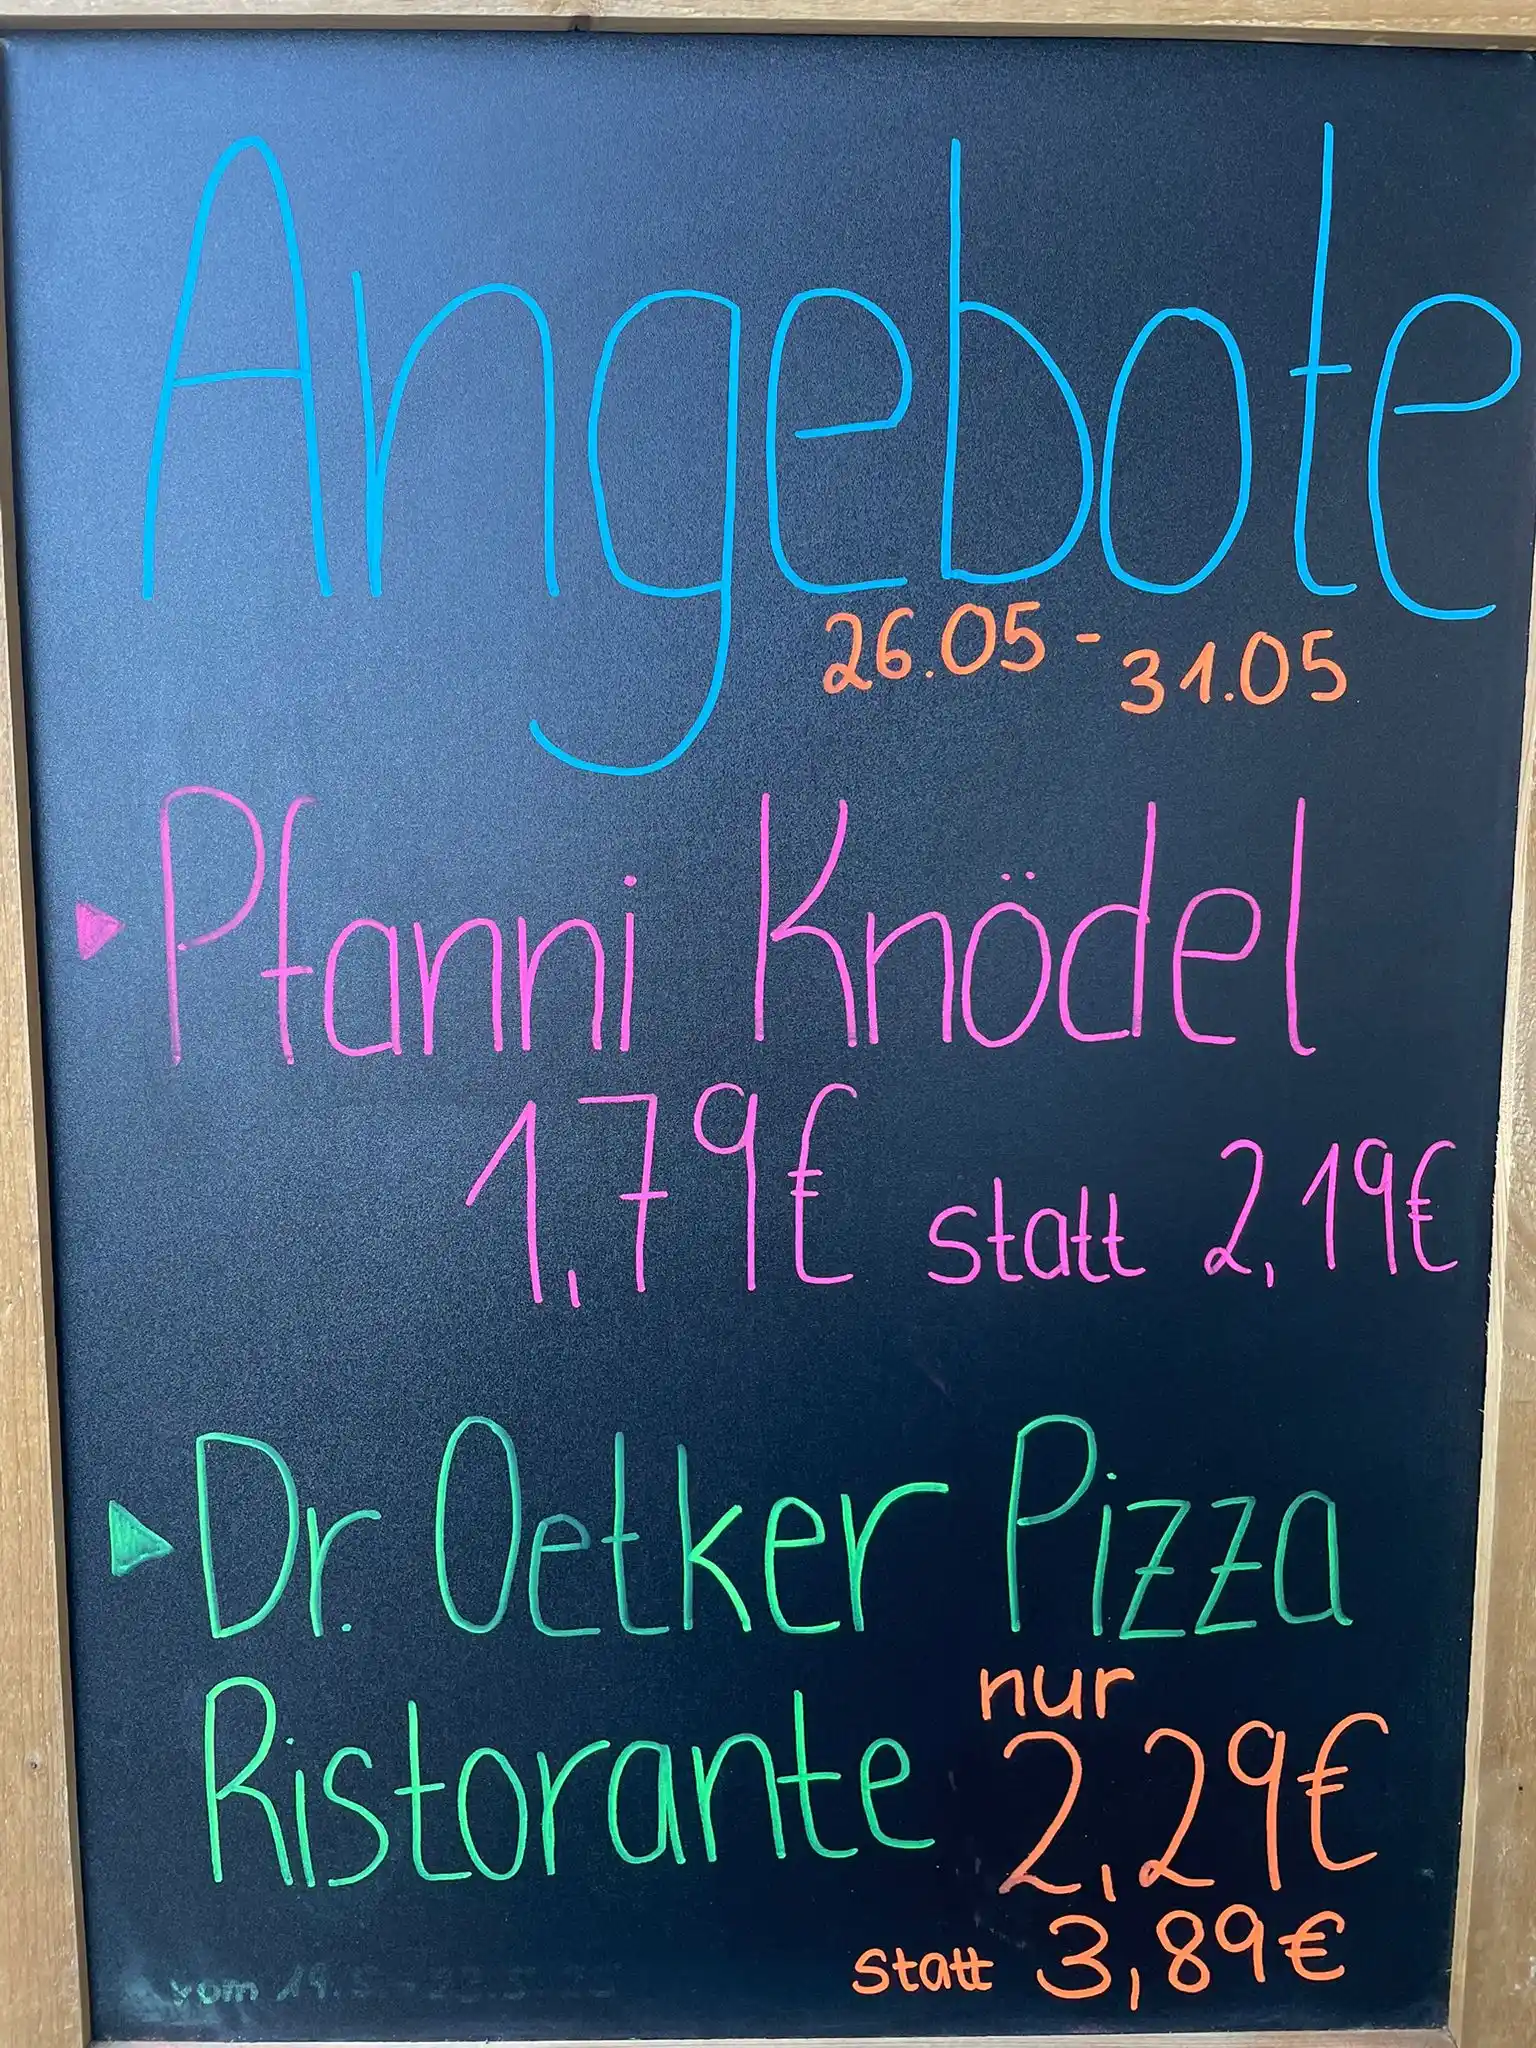 Angebote
26.05 - 31.05
Pfanni Knödel
1,79€ statt 2,19€
Dr. Oetker Pizza
Ristorante nur
2,29€
statt 3,89€
vom